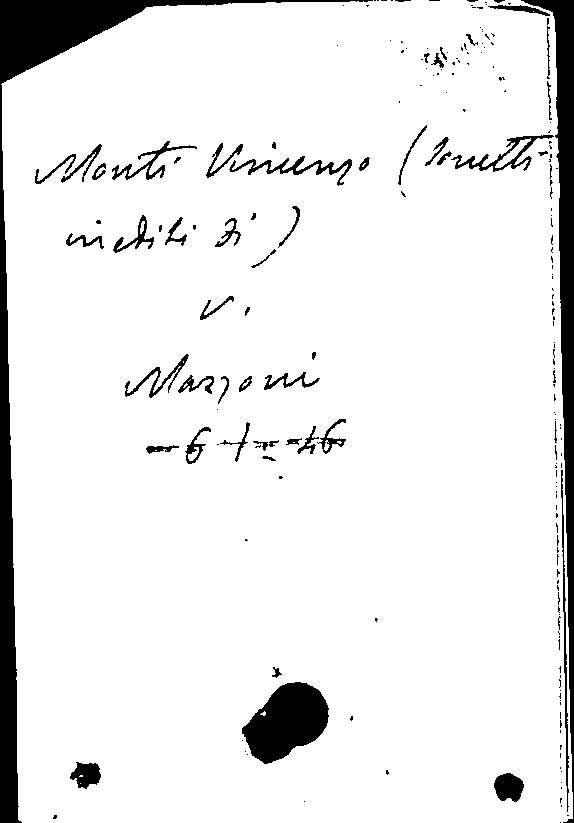 Monti Vincenzo (Sonetti
inediti di)
v.
Mazzoni